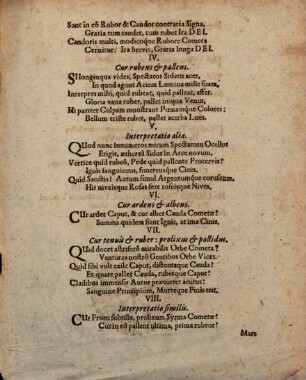 Sunt in eô Rubor & Candor contraria Signa,
Gratia cum candet, cum rubet Ira DEI.
Candoris multi, modicoque Rubore Cometa
Cernitur: Ira brevis, Gratia longa DEI.
IV.
Cur rubens & pallens.
SI longinqua vides, Spectator Sideris acer,
In quod agunt Aciem Lumina mille suam,
Interpres mihi, quid rubeat, quid palleat, asser.
Gloria vana rubet, pallet iniqua Venus,
Hi pariter Culpam monstrant Pœnamque Colores;
Bellum triste rubet, pallet acerba Lues.
V.
Interpretatio alia.
QUod nunc innumeros mirum Spectamen Ocellos
Erigit, æthereâ Sidus in Arce novum,
Vertice quid rubeô, Pede quid pallente Protervis?
Ignis sanguineus, funereusque Cinis.
Quid Sanctis? Aurum simul Argentumque coruscum.
His niveisque Rosa fert roseisque Nives,
VI.
Cur ardens & albens.
CUr ardet Caput, & cur albet Cauda Cometæ?
Summa quidem sunt Ignis, at ima Cinis.
VII.
Cur tenuis & ruber: prolixus & pallidus.
QUid docet astriferô mirabilis Orbe Cometa?
Venturas nostrô Gentibus Orbe Vices.
Quid sibi vult exile Caput, distentaque Cauda?
Et quare pallet Cauda, rubetque Caput?
Cladibus immensis Autor præcurret acutus:
Sanguine Principium, Morteque Finis erit.
VIII.
Interpretatio similis.
CUr Frons subtilis, prolixum Syrma Cometæ?
Cur in eô pallent ultima, prima rubent?
Mars